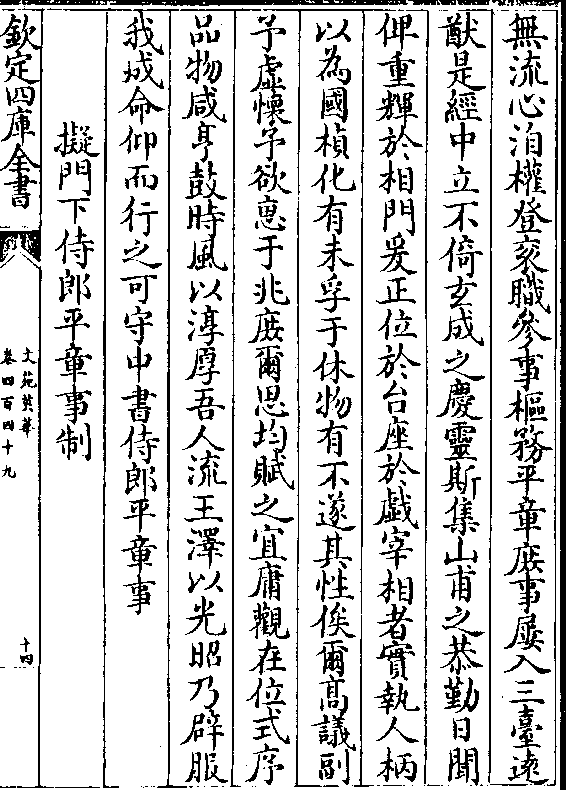 無流心洎權登衮職參事樞務平章庶事屢入三臺逺
猷是經中立不倚玄成之慶靈斯集山甫之恭勤日聞
俾重輝於相門爰正位於台座於戲宰相者實執人柄
以為國楨化有未孚于休物有不遂其性俟爾髙議副
予虚懐予欲惠于兆庶爾思均賦之宜庸觀在位式序
品物咸亨鼓時風以淳厚吾人流王澤以光昭乃辟服
我成命仰而行之可守中書侍郎平章事
擬門下侍郎平章事制
欽定四庫全書
文苑英華
卷四百四十九
十四